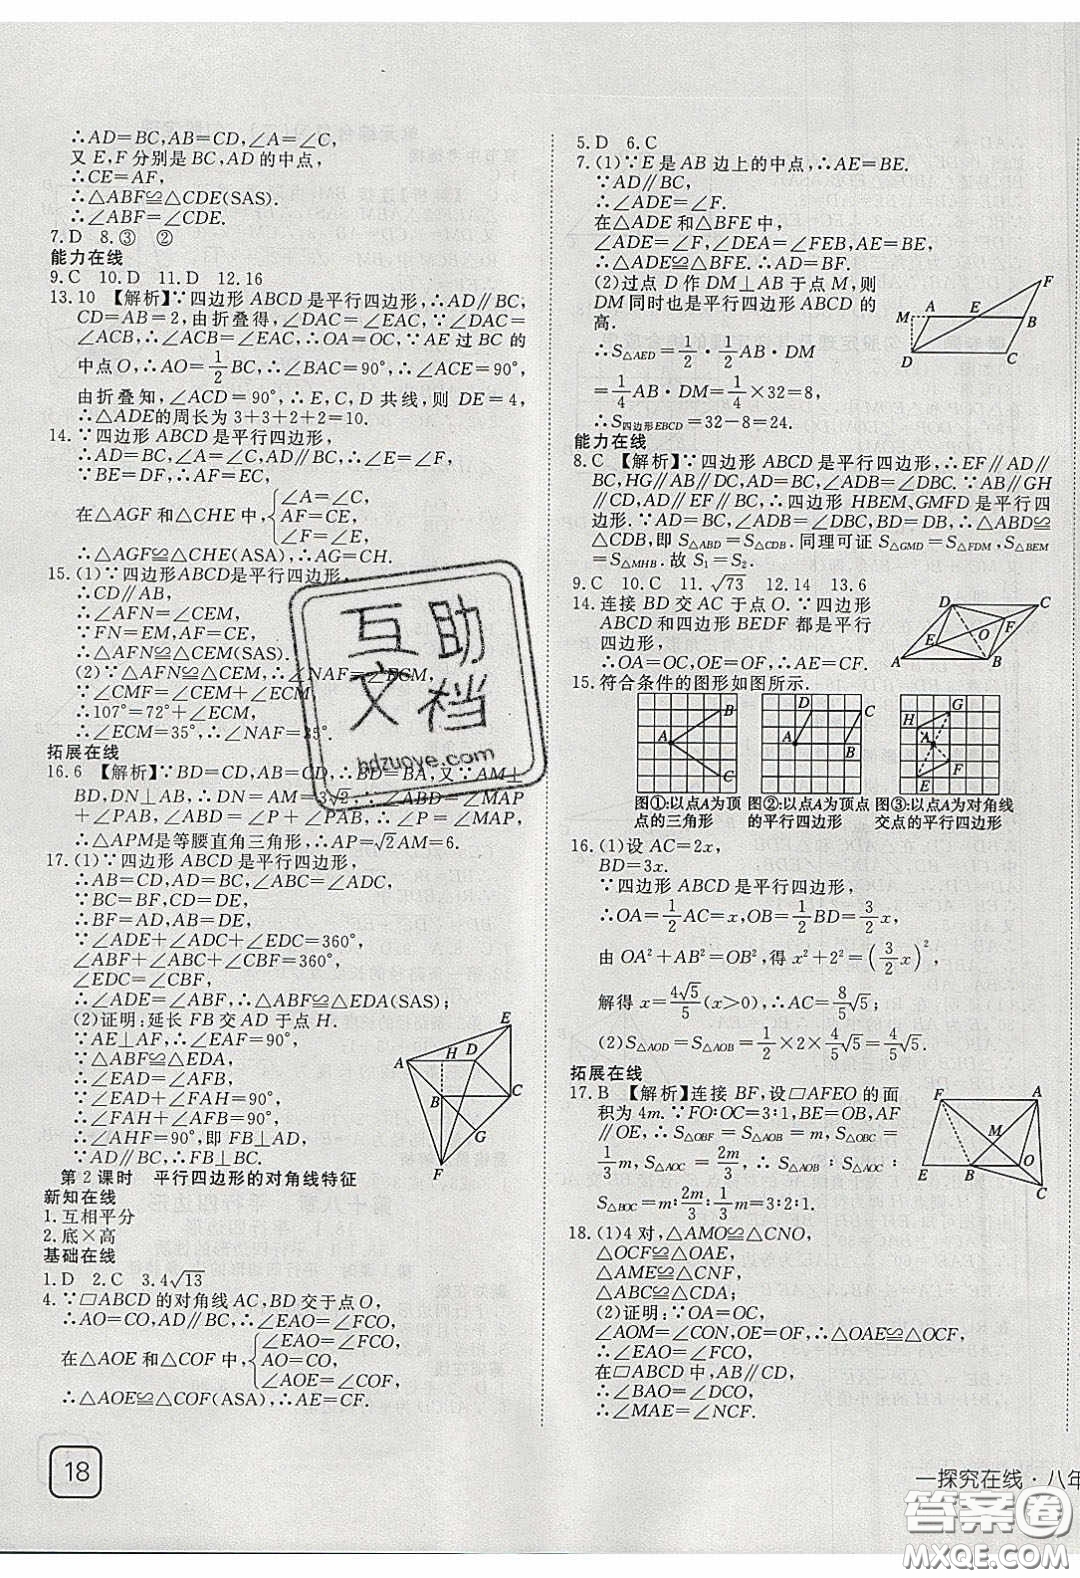 ∴AD=BC,AB=CD,∠A=∠C,
又 E,F 分别是 BC,AD 的中点,
∴CE=AF,
∴△ABF≌△CDE(SAS).
∴∠ABF=∠CDE.
7.D 8.③ ②
能力在线
9.C 10.D 11.D 12.16
13.10 【解析】∵四边形 ABCD 是平行四边形,∴AD∥BC,
CD=AB=2,由折叠得,∠DAC=∠EAC,∵∠DAC=
∠ACB,∴∠ACB=∠EAC,∴OA=OC,∵AE 过 BC 的
中点 O,∴AO=1/2BC,∴∠BAC=90°,∴∠ACE=90°,
由折叠知,∠ACD=90°,∴E,C,D 共线,则 DE=4,
∴△ADE的周长为 3+3+2+2=10.
14.∵四边形 ABCD 是平行四边形,
∴AD∥BC,∠A=∠C,∴∠E=∠F,
∵BE=DF,∴AF=EC,
在△AGF 和△CHE 中,{∠A=∠C,
AF=CE,
∠F=∠E,
∴△AGF≌△CHE(ASA),∴AG=CH.
15.(1)∵四边形ABCD是平行四边形,
∴CD∥AB,
∴∠AFN=∠CEM,
∵FN=EM,AF=CE,
∴△AFN≌△CEM(SAS).
(2)∵△AFN≌△CEM,∴∠NAF=∠ECM,
∵∠CMF=∠CEM+∠ECM,
∴107°=72°+∠ECM,
∴∠ECM=35°,∴∠NAF=35°.
拓展在线
16.6 【解析】∵BD=CD,AB=CD,∴BD=BA,又∵AM⊥
BD,DN⊥AB,∴DN=AM=3√2,∴∠ABD=∠MAP
+∠PAB,∠ABD=∠P+∠PAB,∴∠P=∠MAP,
∴△APM是等腰直角三角形,∴AP=√2AM=6.
17.(1)∵四边形 ABCD 是平行四边形,
∴AB=CD,AD=BC,∠ABC=∠ADC,
∵BC=BF,CD=DE,
∴BF=AD,AB=DE,
∵∠ADE+∠ADC+∠EDC=360°,
∠ABF+∠ABC+∠CBF=360°,
∠EDC=∠CBF,
∴∠ADE=∠ABF,∴△ABF≌△EDA(SAS);
(2)证明:延长 FB 交 AD 于点 H.
∵AE⊥AF,∴∠EAF=90°,
∵△ABF≌△EDA,
∴∠EAD=∠AFB,
∵∠EAD+∠FAH=90°,
∴∠FAH+∠AFB=90°,
∴∠AHF=90°,即 FB⊥AD,
∵AD∥BC,∴FB⊥BC.
E
A H D
B C
G
F
第 2 课时 平行四边形的对角线特征
新知在线
1.互相平分
2.底×高
基础在线
1.D 2.C 3.4√13
4.∵▱ABCD 的对角线 AC,BD 交于点 O,
∴AO=CO,AD∥BC,∴∠EAO=∠FCO,
在△AOE 和△COF 中,{∠EAO=∠FCO,
AO=CO,
∠AOE=∠COF,
∴△AOE≌△COF(ASA),∴AE=CF.
18
5.D 6.C
7.(1)∵E 是 AB 边上的中点,∴AE=BE.
∵AD∥BC,
∴∠ADE=∠F.
在△ADE 和△BFE 中,
∠ADE=∠F,∠DEA=∠FEB,AE=BE,
∴△ADE≌△BFE.
(2)过点 D 作 DM⊥AB 于点 M,则
DM 同时也是平行四边形 ABCD 的
高.
∴S△AED=1/2·1/2AB·DM
=1/4AB·DM=1/4×32=8,
∴S四边形EBCD=32-8=24.
F
M A E B
D C
能力在线
8.C 【解析】∵四边形 ABCD 是平行四边形,∴EF∥AD∥
BC,HG∥AB∥DC,AD=BC,∠ADB=∠DBC.∵AB∥GH
∥CD,AD∥EF∥BC,∴四边形 HBEM,GMFD 是平行四
边形.∵AD=BC,∠ADB=∠DBC,BD=DB,∴△ABD≌
△CDB,即 S△ABD=S△CDB.同理可证 S△GMD=S△FDM,S△BEM
=S△MHB.故 S1=S2.
9.C 10.C 11.√73 12.14 13.6
14.连接 BD 交 AC 于点 O.∵四边形
ABCD 和四边形 BEDF 都是平行
四边形,
∴OA=OC,OE=OF,∴AE=CF.
D C
E O F
A B
15.符合条件的图形如图所示.
B
A
C
D C
A B
G
H
A
F
E
图①:以点A为顶
点的三角形
图②:以点A为顶点
的平行四边形
图③:以点A为对角线
交点的平行四边形
16.(1)设 AC=2x,
BD=3x.
∵四边形 ABCD 是平行四边形,
∴OA=1/2AC=x,OB=1/2BD=3/2x,
由 OA²+AB²=OB²,得 x²+2²=(3/2x)²,
解得 x=4√5/5(x>0),∴AC=8/5√5;
(2)S△AOD=S△AOB=1/2×2×4/5√5=4/5√5.
拓展在线
17.B 【解析】连接 BF,设▱AFEO 的面
积为 4m.∵FO:OC=3:1,BE=OB,AF
∥OE,∴S△OBF=S△AOB=m,S△OBC=
1/3m,S△AOC=2m/3,∴S△AOB:S△AOC:
S△BOC=m:2m/3:1/3m=3:2:1.
F A
M
E B O
C
18.(1)4 对,△AMO≌△CNO,
△OCF≌△OAE,
△AME≌△CNF,
△ABC≌△CDA;
(2)证明:∵OA=OC,
∠AOM=∠CON,OE=OF,∴△OAE≌△OCF,
∴∠EAO=∠FCO,
在▱ABCD 中,AB∥CD,
∴∠BAO=∠DCO,
∴∠MAE=∠NCF.
一探究在线·八年
互助
文档
hdzuoye.com
答案圈
MXQE.COM